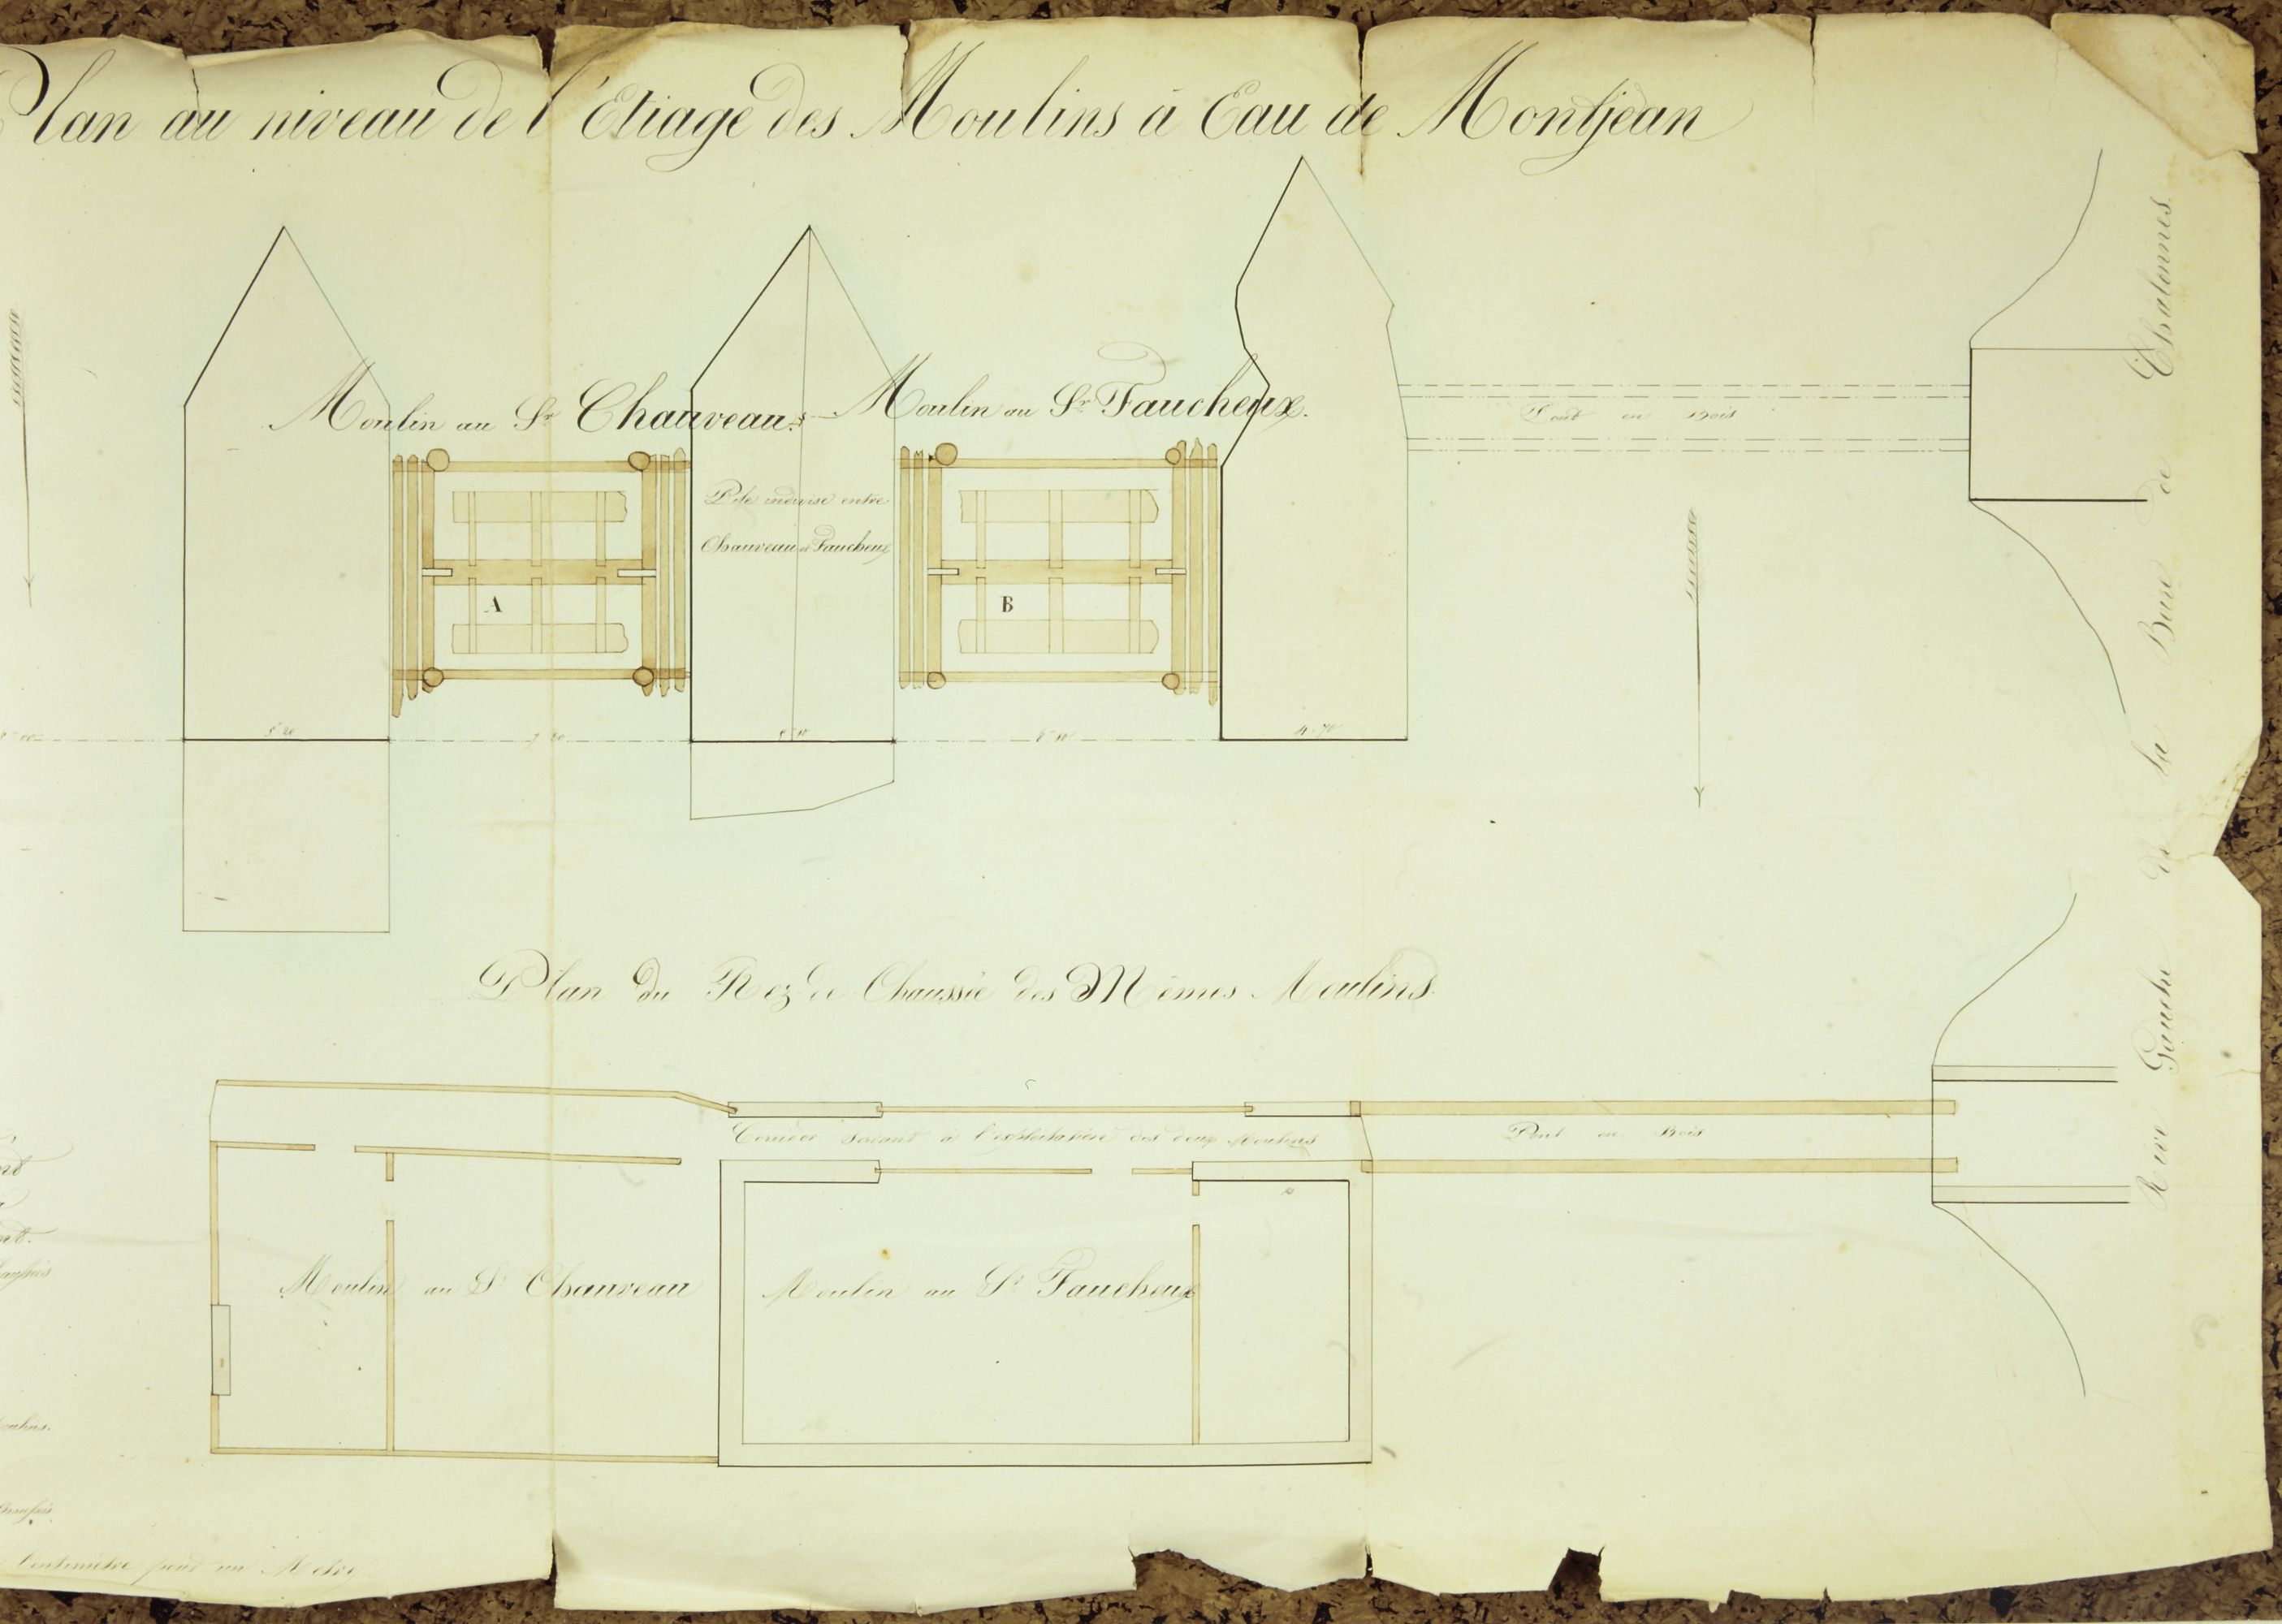 Plan au niveau de l'Etiage des Moulins à Eau de Montjean
Moulin au Sr Chauveau.
Moulin au Sr Faucheux.
Pile indivise entre
Chauveau et Faucheux
A
B
Pont en Bois
4-70
Plan du Rez de Chaussée des Mêmes Moulins.
Corridor servant à l'exploitation des deux Moulins
Pont en Bois
Moulin au Sr Chauveau
Moulin au Sr Faucheux
Rive Gauche de la Boire de Chalonnes
Centimètre pour un Mètre